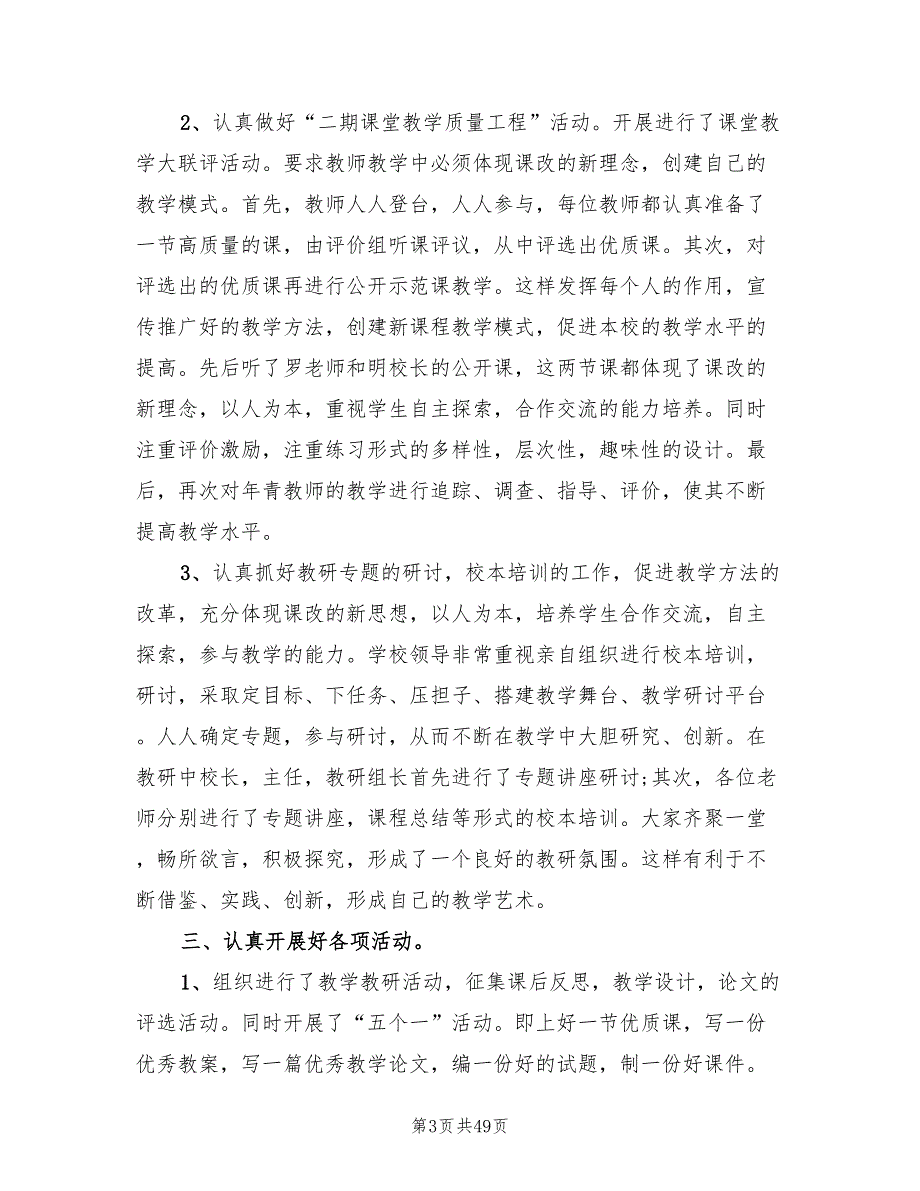 2、认真做好“二期课堂教学质量工程”活动。开展进行了课堂教
学大联评活动。要求教师教学中必须体现课改的新理念，创建自己的
教学模式。首先，教师人人登台，人人参与，每位教师都认真准备了
一节高质量的课，由评价组听课评议，从中评选出优质课。其次，对
评选出的优质课再进行公开示范课教学。这样发挥每个人的作用，宣
传推广好的教学方法，创建新课程教学模式，促进本校的教学水平的
提高。先后听了罗老师和明校长的公开课，这两节课都体现了课改的
新理念，以人为本，重视学生自主探索，合作交流的能力培养。同时
注重评价激励，注重练习形式的多样性，层次性，趣味性的设计。最
后，再次对年青教师的教学进行追踪、调查、指导、评价，使其不断
提高教学水平。
3、认真抓好教研专题的研讨，校本培训的工作，促进教学方法的
改革，充分体现课改的新思想，以人为本，培养学生合作交流，自主
探索，参与教学的能力。学校领导非常重视亲自组织进行校本培训，
研讨，采取定目标、下任务、压担子、搭建教学舞台、教学研讨平台
。人人确定专题，参与研讨，从而不断在教学中大胆研究、创新。在
教研中校长，主任，教研组长首先进行了专题讲座研讨;其次，各位老
师分别进行了专题讲座，课程总结等形式的校本培训。大家齐聚一堂
，畅所欲言，积极探究，形成了一个良好的教研氛围。这样有利于不
断借鉴、实践、创新，形成自己的教学艺术。
三、认真开展好各项活动。
1、组织进行了教学教研活动，征集课后反思，教学设计，论文的
评选活动。同时开展了“五个一”活动。即上好一节优质课，写一份
优秀教案，写一篇优秀教学论文，编一份好的试题，制一份好课件。
第3页共49页